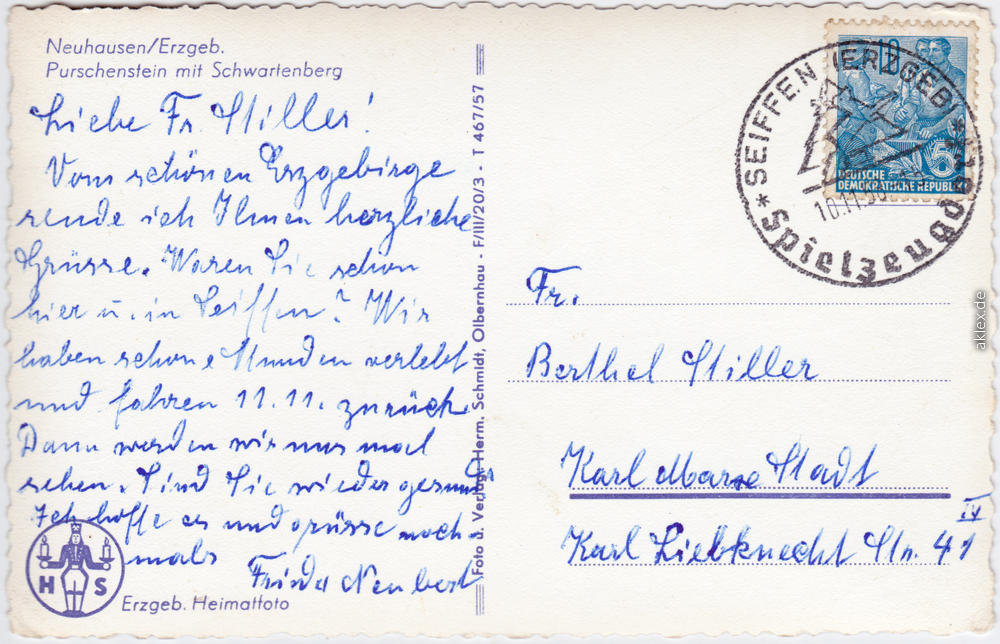 Neuhausen/Erzgeb.
Purschenstein mit Schwartenberg
Liebe Fr. Stiller!
Vom schönen Erzgebirge
sende ich Ihnen herzliche
Grüsse. Waren Sie schon
hier u. in Seiffen? Wir
haben schöne Stunden verlebt
und fahren 11.11. zurück.
Dann werden wir uns mal
sehen. Sind Sie wieder gesund?
Ich hoffe es und grüsse noch-
mals Frieda Neubert
H S
Erzgeb. Heimatfoto
Foto u. Verlag: Herm. Schmidt, Olbernhau - F/III/20/3 - T 467/57
10
5
DEUTSCHE
DEMOKRATISCHE REPUBLIK
* SEIFFEN (ERZGEB) *
10.11.58
Spielzeugdorf
Fr.
Berthel Stiller
Karl Marx Stadt
IV
Karl Liebknecht Str. 41
aklex.de